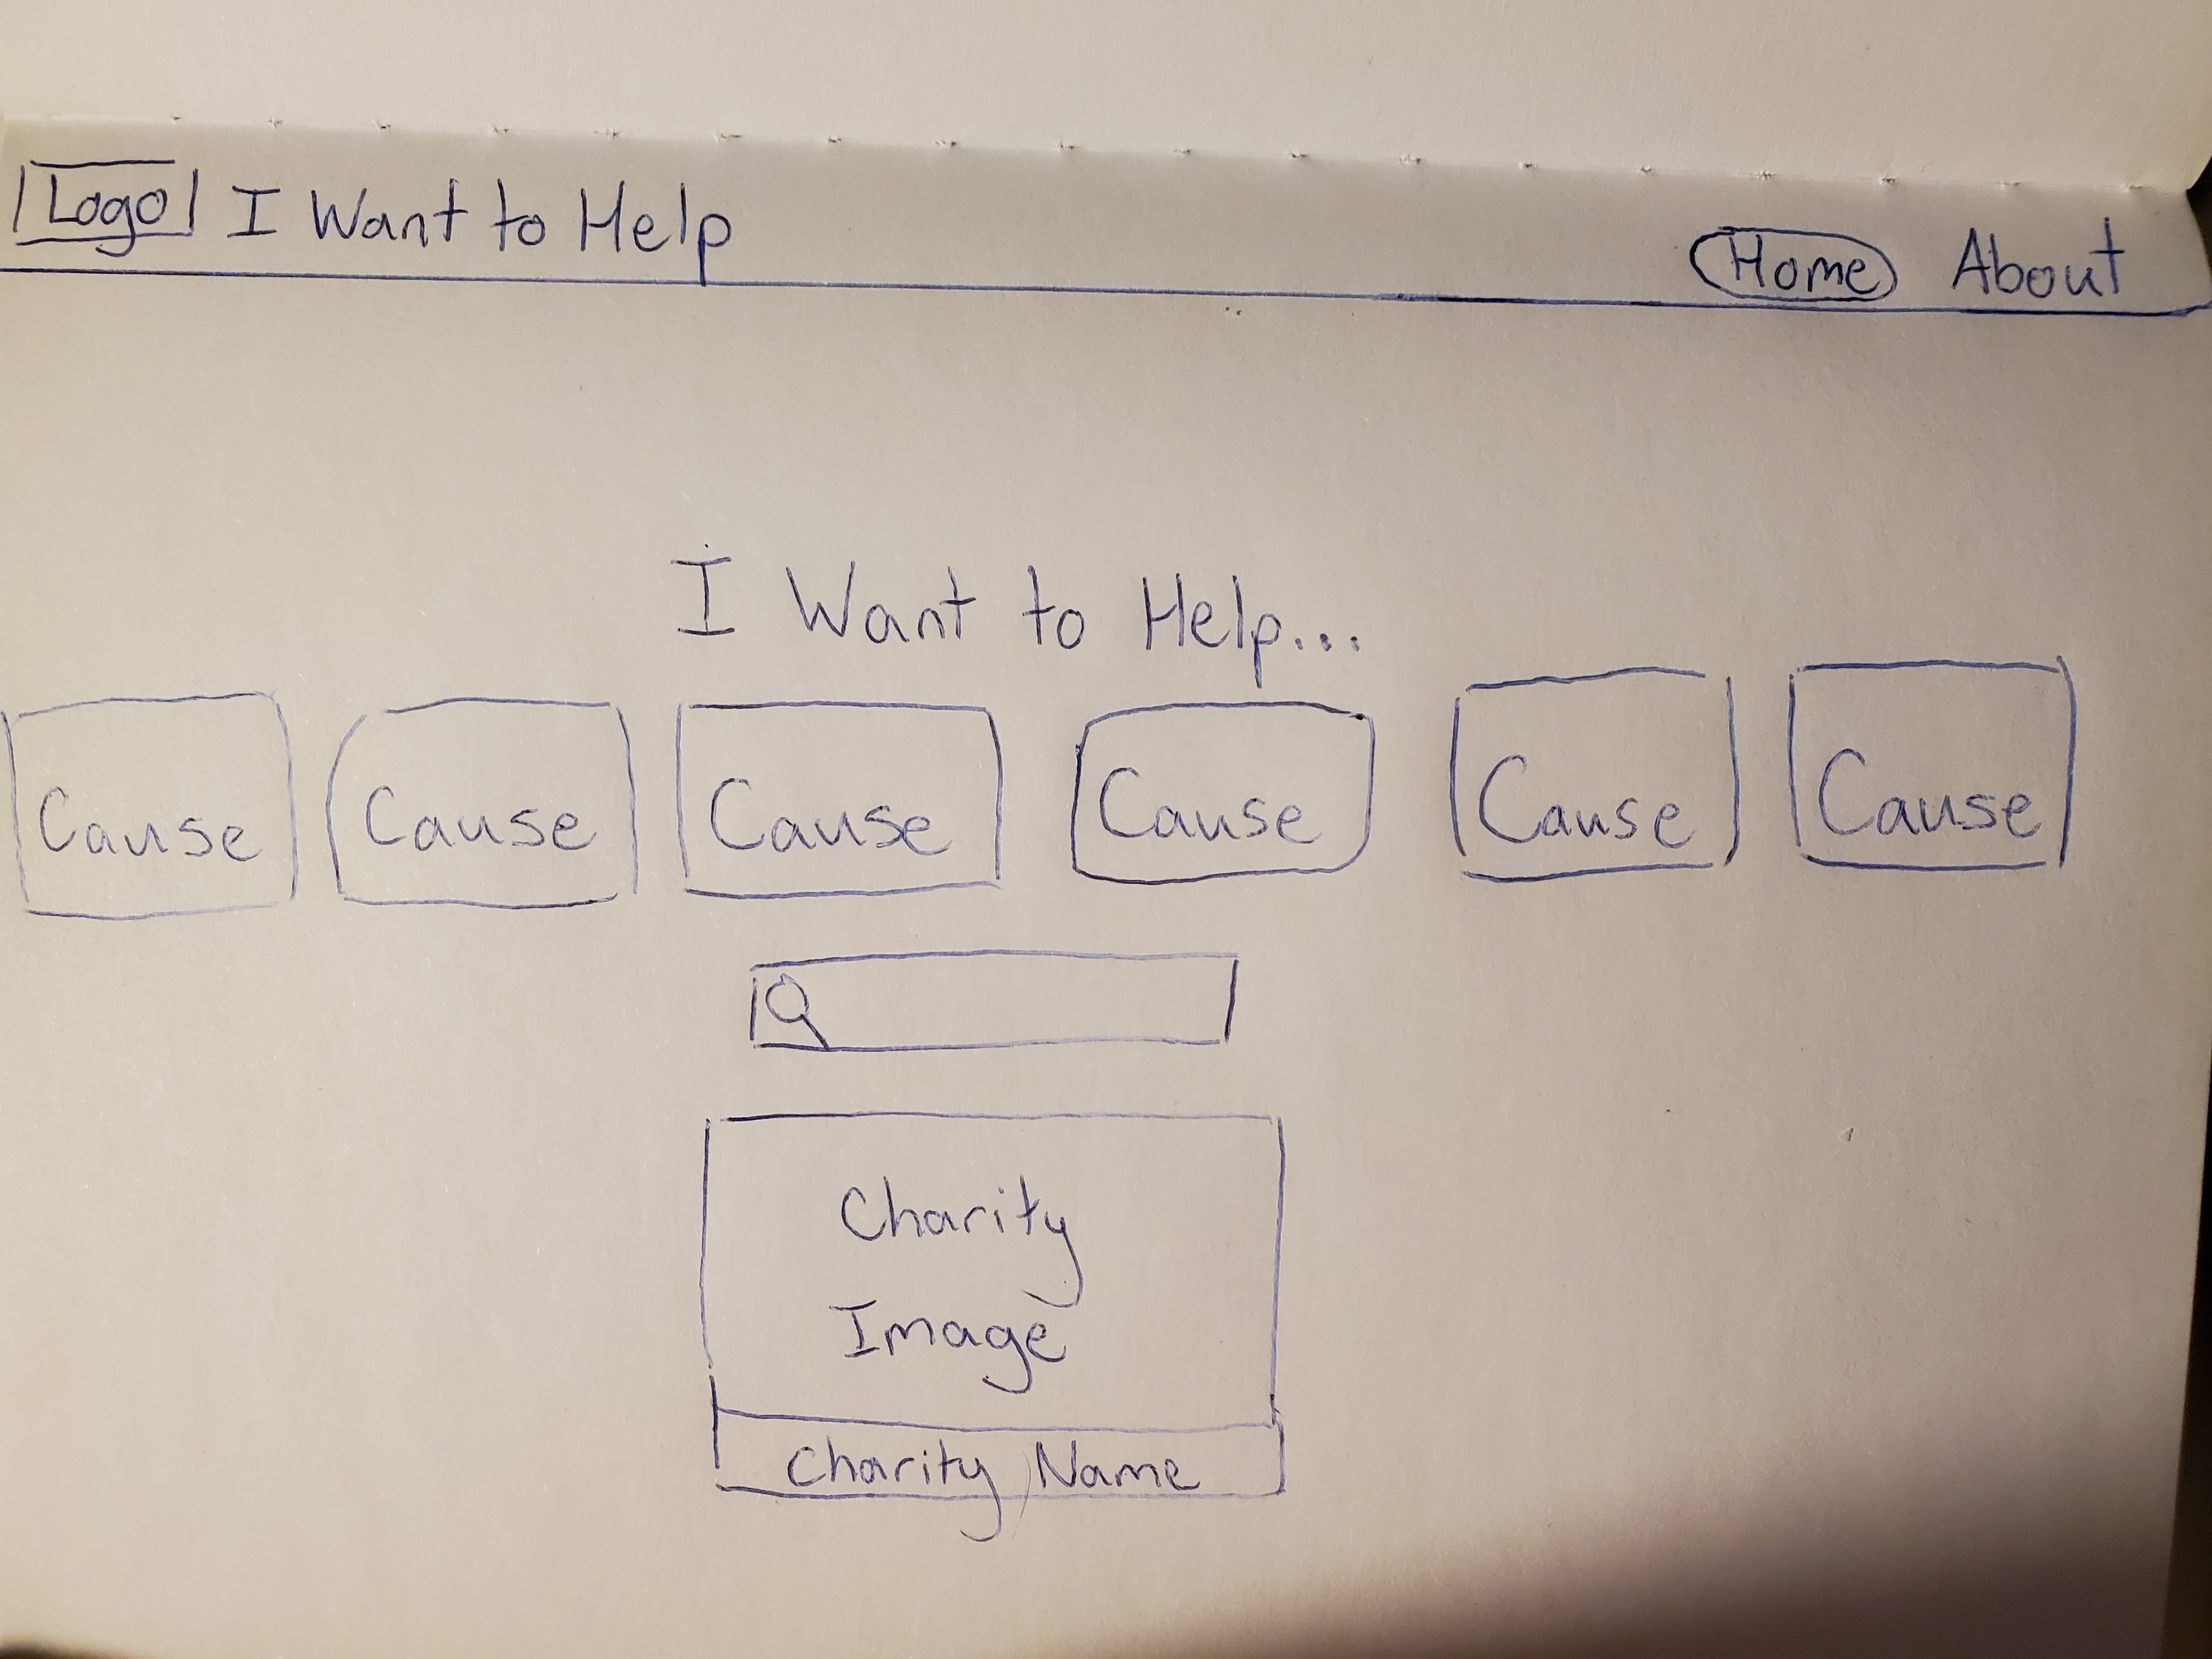 Logo I Want to Help Home About
I Want to Help...
Cause Cause Cause Cause Cause Cause
Charity
Image
Charity Name